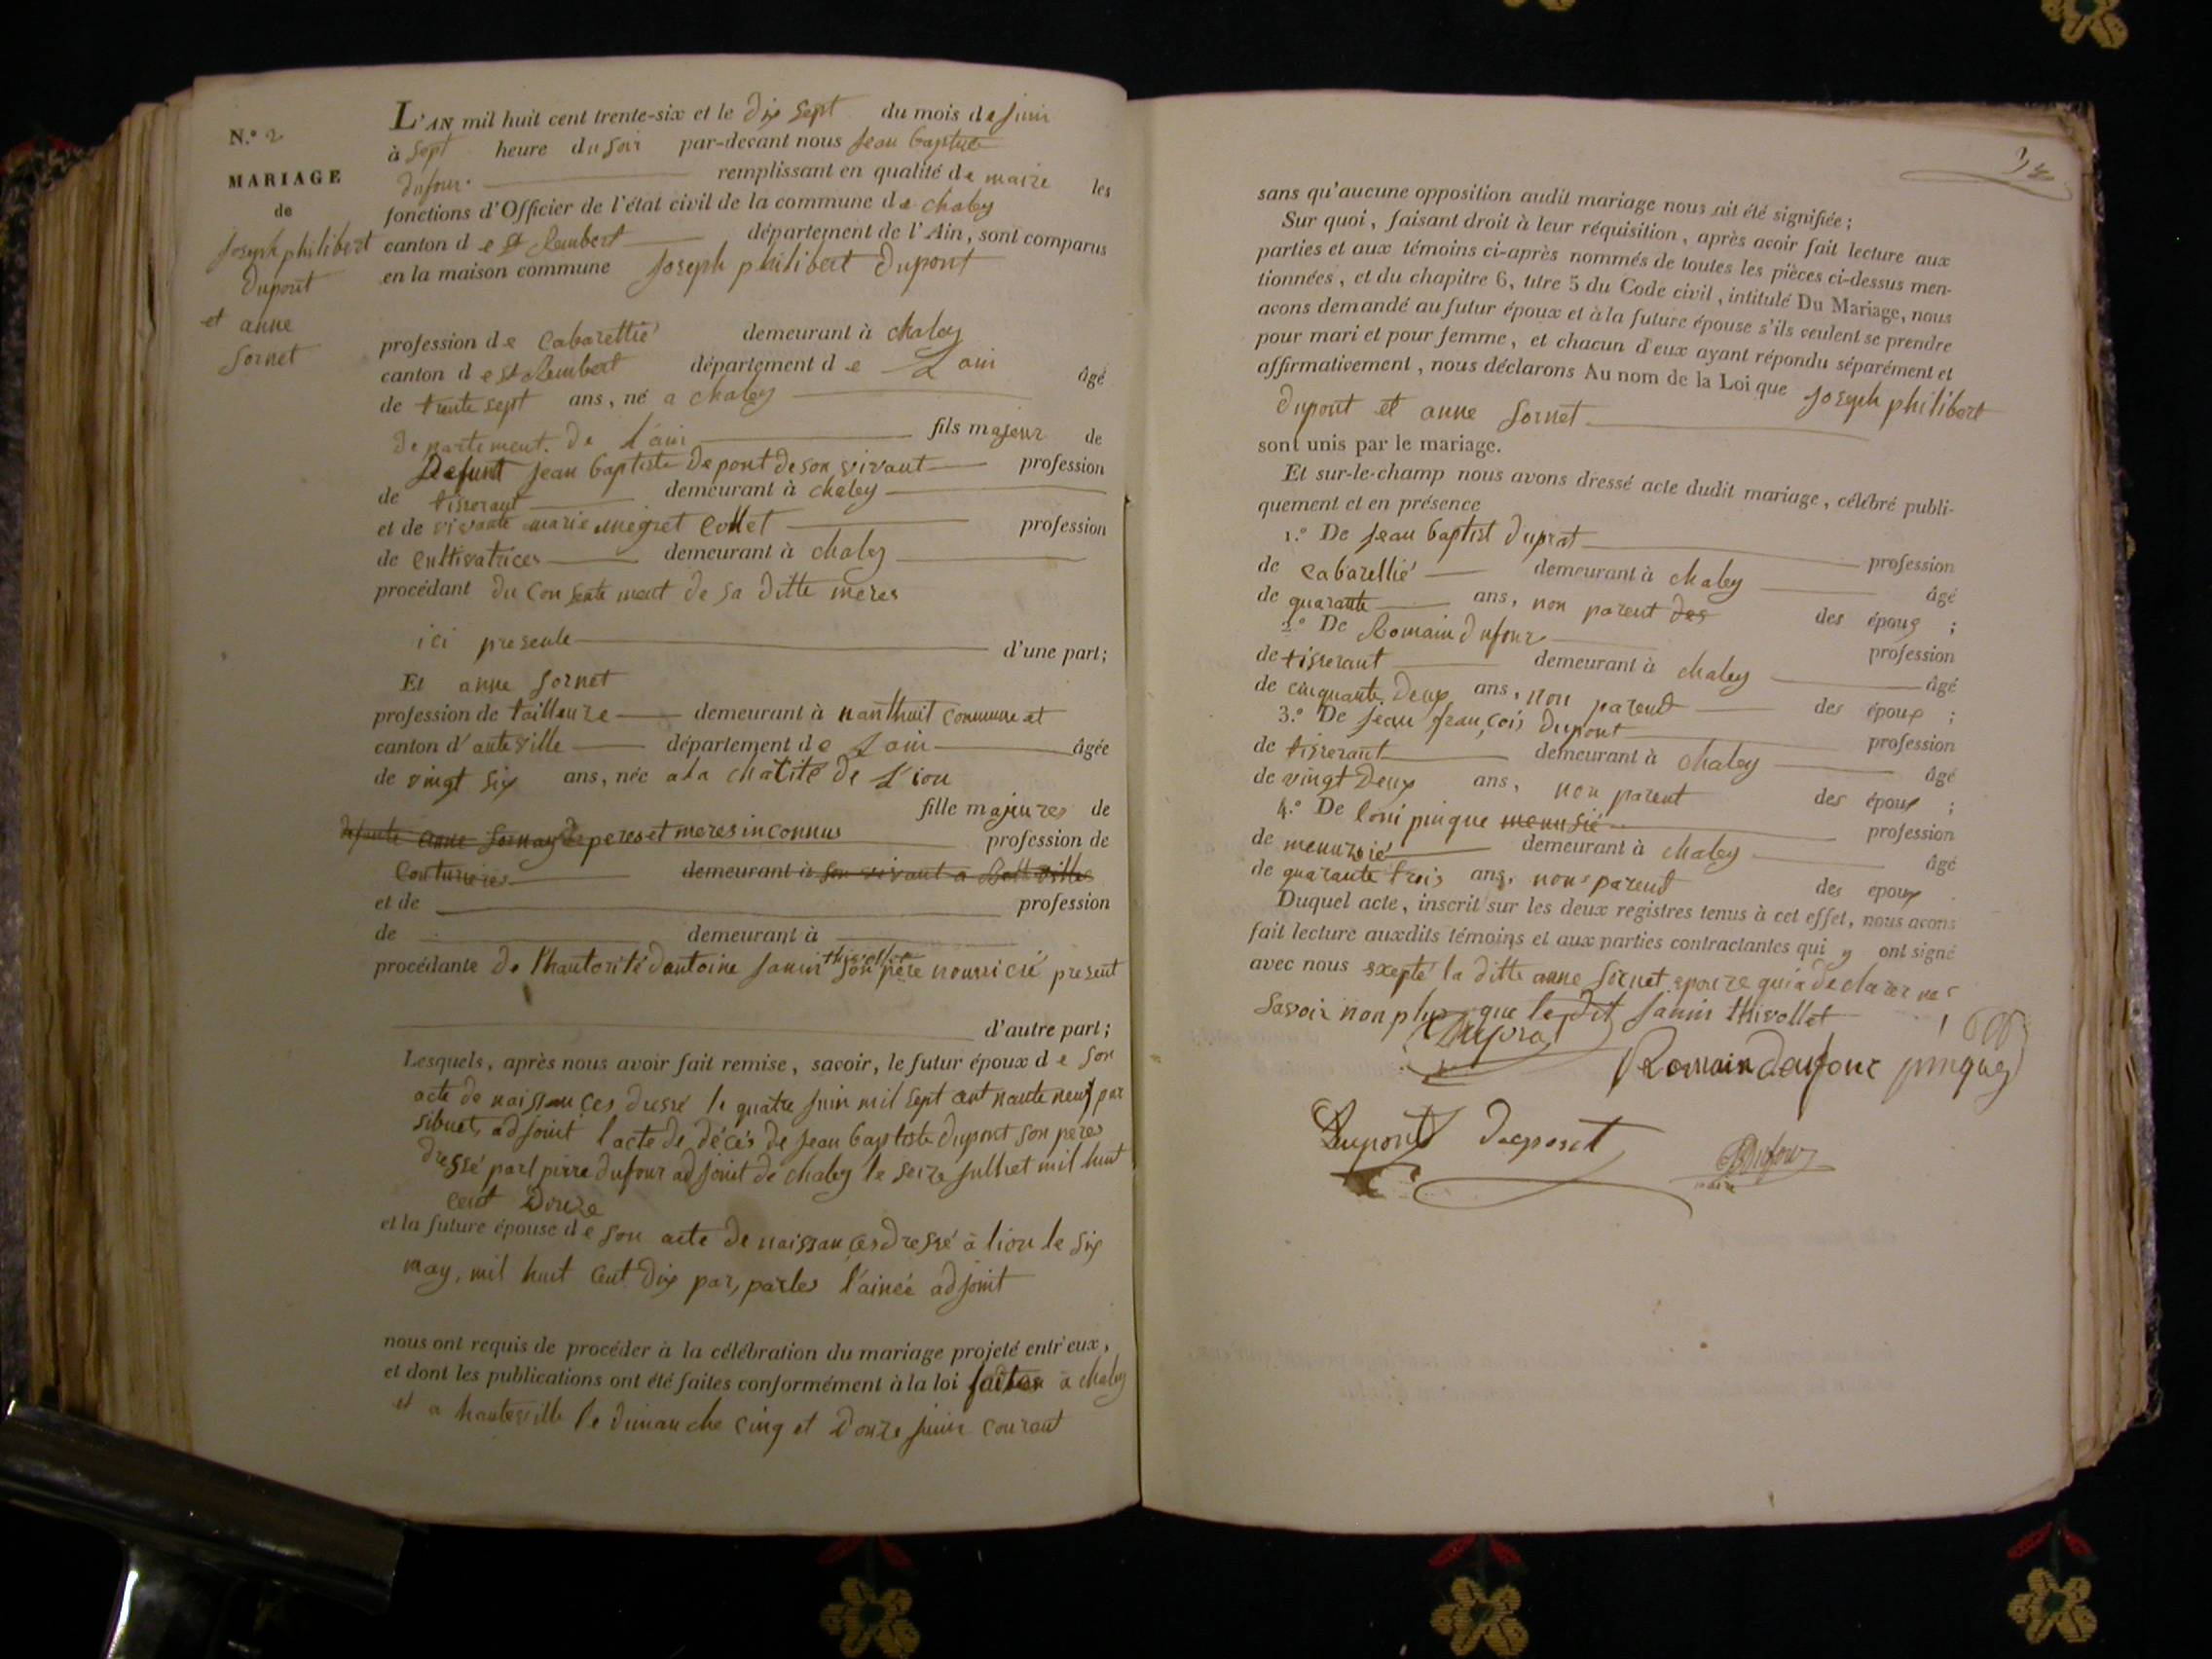 N.° 2
MARIAGE
de
Joseph philibert
Dupont
et anne
Sornet
L'AN mil huit cent trente-six et le dix sept du mois de juin
à sept heure du soir par-devant nous Jean baptiste
dufour remplissant en qualité de maire les
fonctions d'Officier de l'état civil de la commune de chaley
canton de st Rambert département de l'Ain, sont comparus
en la maison commune Joseph philibert Dupont
profession de Cabarettié demeurant à chaley
canton de st Rambert département de L'ain âgé
de trente sept ans, né a chaley
departement de l'ain fils majeur de
Defunt Jean baptiste Dupont de son vivant profession
de tisserant demeurant à chaley
et de vivante marie Collet profession
de Cultivatrices demeurant à chaley
procédant du Consentement de sa ditte meres
ici presente d'une part;
Et anne Sornet
profession de tailleuze demeurant à nanthuit Commune et
canton d'auteville département de L'ain âgée
de vingt six ans, née a la charité de L'ion
fille majeures de
defunte anne Sornay de peres et meres inconnus profession de
Couturieres demeurant à son vivant a
et de profession
de demeurant à
procédante de l'hautorité dantoine Janin thivollet son père nourricié present
d'autre part;
Lesquels, après nous avoir fait remise, savoir, le futur époux de son
acte de naissances dressé le quatre juin mil sept cent nante neuf par
sibuet, adjoint l'acte de décès de Jean baptiste dupont son peres
dressé part pierre dufour adjoint de chaley le seize juillet mil huit
cent Douze
et la future épouse de son acte de naissances dressé à lion le six
may, mil huit Cent Dix par, parles l'ainée adjoint
nous ont requis de procéder à la célébration du mariage projeté entr'eux,
et dont les publications ont été faites conformément à la loi faites à chaley
et a hauteville le dimanche cinq et Douze juin courant
sans qu'aucune opposition audit mariage nous ait été signifiée;
Sur quoi, faisant droit à leur réquisition, après avoir fait lecture aux
parties et aux témoins ci-après nommés de toutes les pièces ci-dessus men-
tionnées, et du chapitre 6, titre 5 du Code civil, intitulé Du Mariage, nous
avons demandé au futur époux et à la future épouse s'ils veulent se prendre
pour mari et pour femme, et chacun d'eux ayant répondu séparément et
affirmativement, nous déclarons Au nom de la Loi que Joseph philibert
Dupont et anne Sornet
sont unis par le mariage.
Et sur-le-champ nous avons dressé acte dudit mariage, célébré publi-
quement et en présence
1.° De Jean baptist Duprat profession
de Cabarellié demeurant à chaley âgé
de quarante ans, non parent des des époux ;
2.° De Romain dufour profession
de tisserant demeurant à chaley âgé
de cinquante Deux ans, non parend des époux ;
3.° De Jean françois Dupont profession
de tisserant demeurant à chaley âgé
de vingt Deux ans, non parent des époux ;
4.° De loni pingue menusié profession
de menuzié demeurant à chaley âgé
de quarante trois ans, non parend des epoux
Duquel acte, inscrit sur les deux registres tenus à cet effet, nous avons
fait lecture auxdits témoins et aux parties contractantes qui y ont signé
avec nous exepté la ditte anne Sornet epouze qui a declarer ne
savoir non plus que le dit Janin thivollet
Duprat
Romain dufour pinguey
Dupont Dupont
Dufour
maire